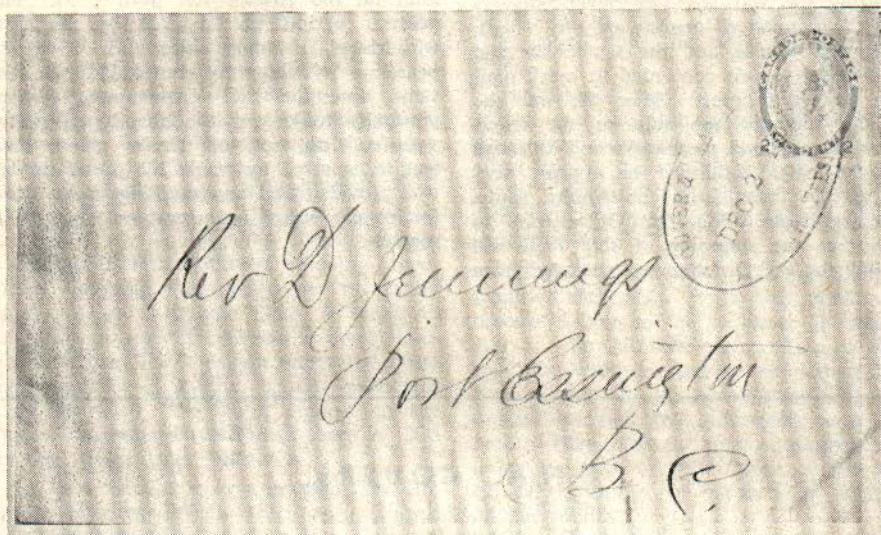 DEC 2
Rev D Jennings
Port Essington
B. C.